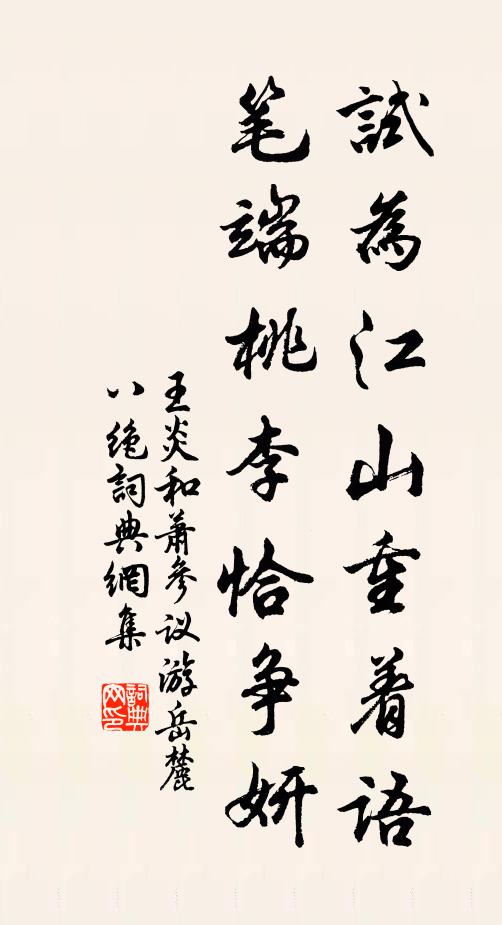 試為江山重着语
笔端桃李恰争妍
王炎和萧参议游岳麓
八绝詞典網集
詞典网印